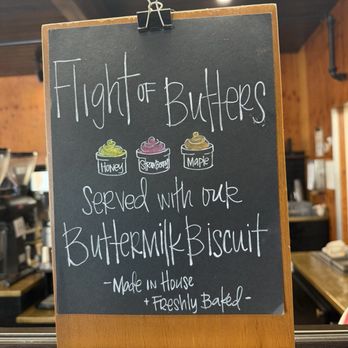 Flight of Butters
Honey Strawberry Maple
served with our
Buttermilk Biscuit
- Made in House
+ Freshly Baked -